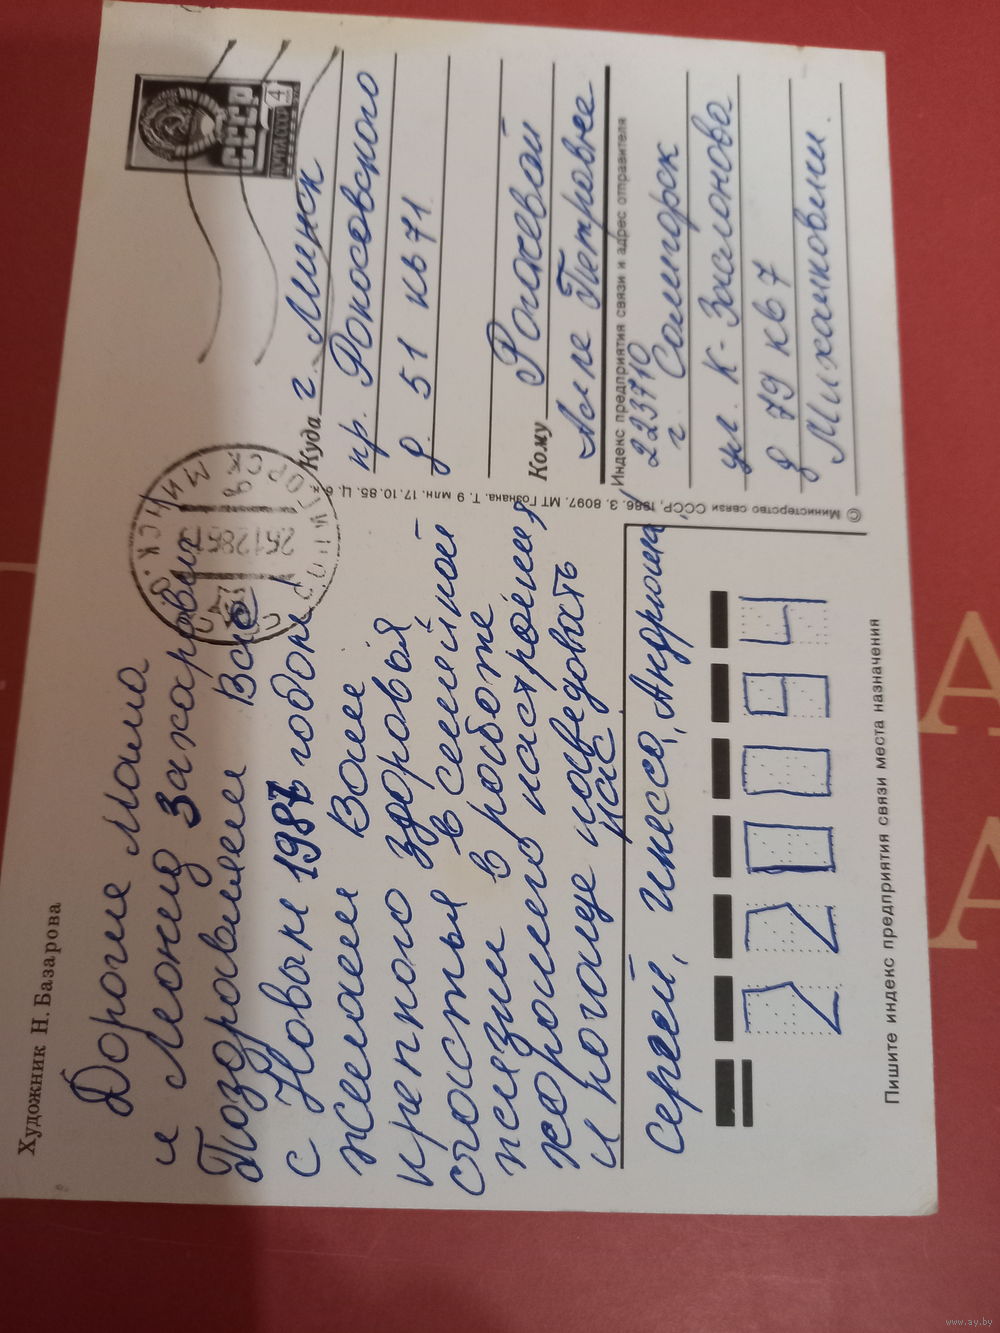 Художник Н. Базарова
Дорогие мама
и Леонид Захарович
Поздравляем Вас
с Новым 1987 годом!
Желаем Вам
крепкого здоровья
счастья в семейной
жизни в работе
хорошего настроения
и почаще наведовать
нас
Сергей, Инесса, Андрюша
СССР
4
ПОЧТА СССР
СОЛИГОРСК
МИНСК
251286
Куда г. Минск
пр. Рокосовского
д. 51 кв 71
Кому Рогачевой
Алле Петровне
Индекс предприятия связи и адрес отправителя
223710
г. Солигорск
ул. К-Заслонова
д 79 кв 7
© Министерство связи СССР, 1986. З. 8097. МТ Гознака. Т. 9 млн. 17.10.85. Ц. 6 к.
220094
Пишите индекс предприятия связи места назначения
www.ay.by